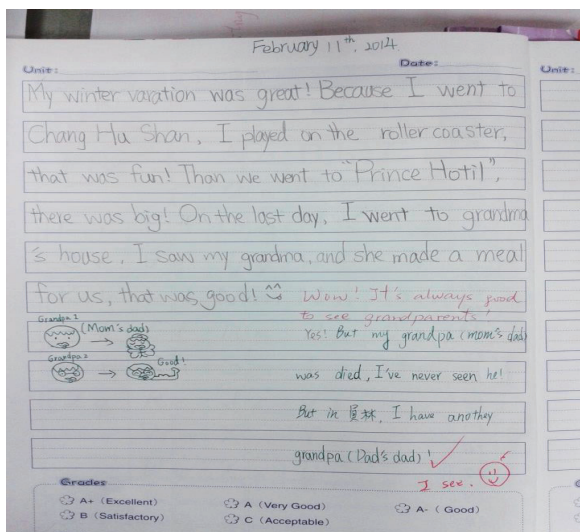 February 11th, 2014.
Unit: Date:
Unit:
My winter varation was great! Because I went to
Chang Hu Shan, I played on the roller coaster,
that was fun! Than we went to "Prince Hotil",
there was big! On the last day, I went to grandma
's house. I saw my grandma, and she made a meal
for us, that was good! ^^
Wow! It's always good
to see grandparents!
Grandpa 1
(Mom's dad)
Yes! But my grandpa (mom's dad)
Grandpa 2
Good!
was died, I've never seen he!
But in 員林, I have anothey
grandpa (Dad's dad)!
I see.
Grades
A+ (Excellent)
A (Very Good)
A- (Good)
B (Satisfactory)
C (Acceptable)
G